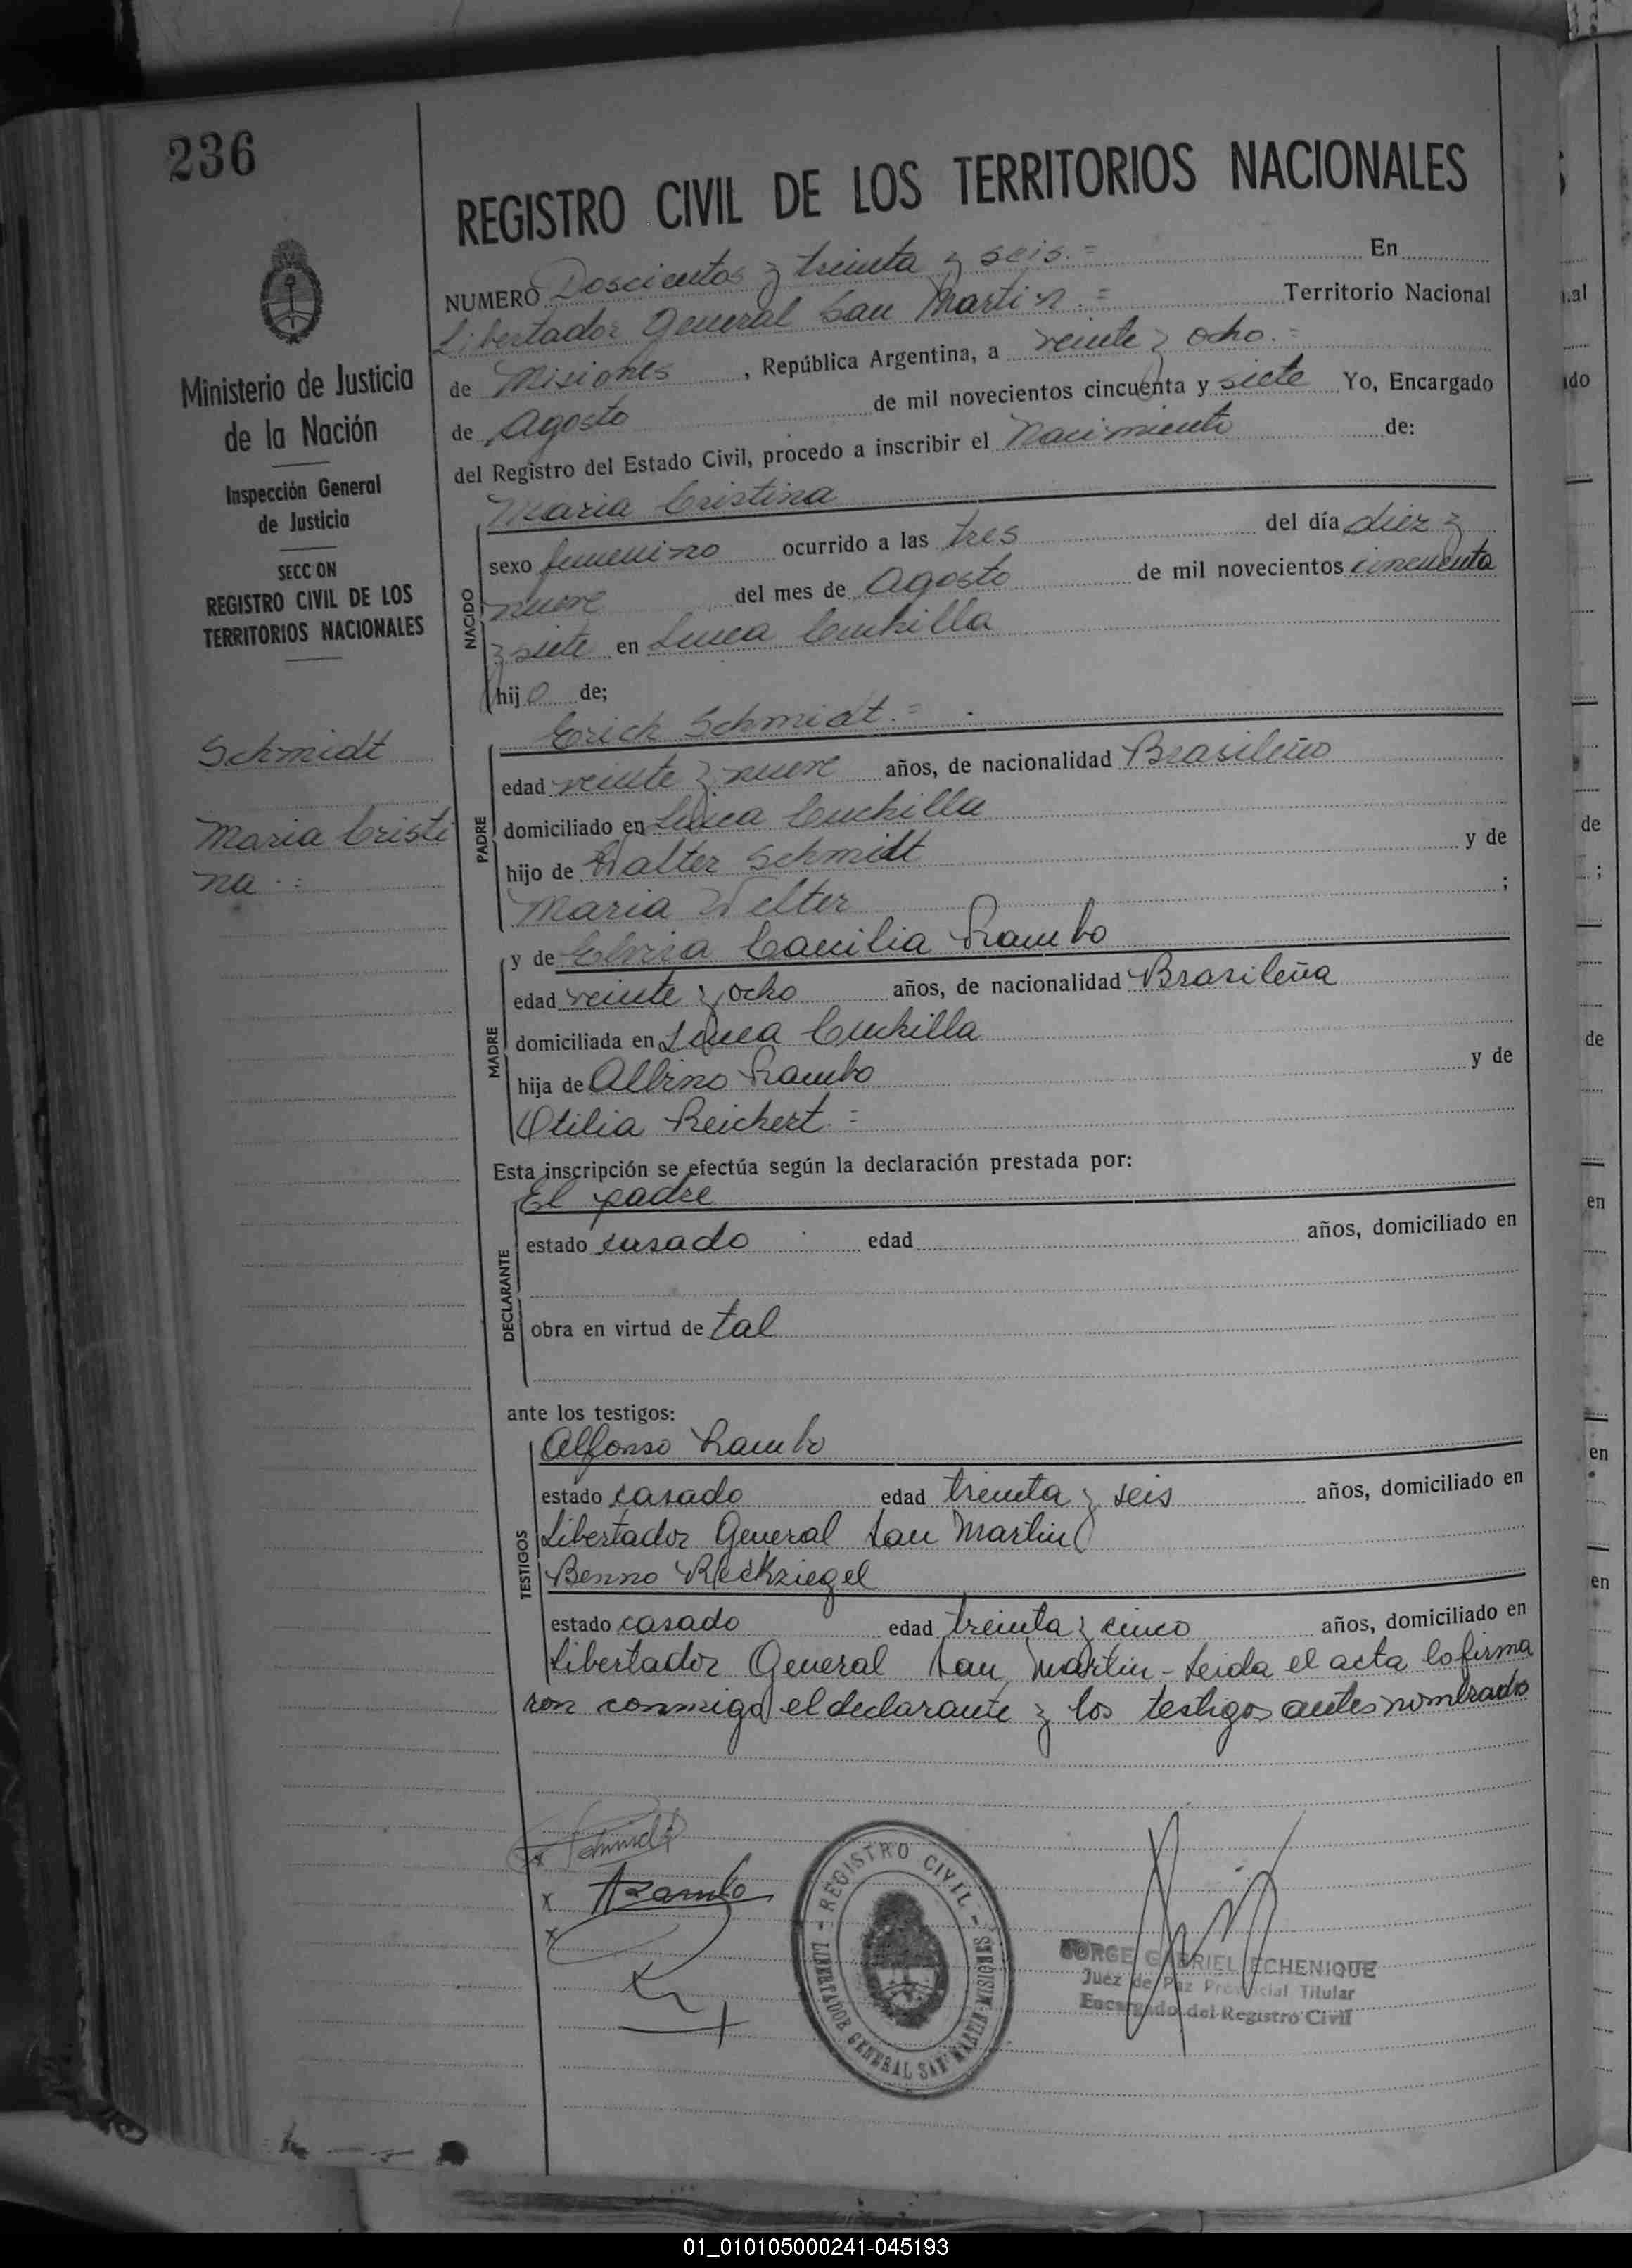 236
REGISTRO CIVIL DE LOS TERRITORIOS NACIONALES
NUMERO Doscientos y treinta y seis.= En
Libertador General San Martin.= Territorio Nacional
de Misiones, República Argentina, a veinte y ocho.=
de Agosto de mil novecientos cincuenta y siete Yo, Encargado
del Registro del Estado Civil, procedo a inscribir el Nacimiento de:
Ministerio de Justicia
de la Nación
Inspección General
de Justicia
SECCION
REGISTRO CIVIL DE LOS
TERRITORIOS NACIONALES
Schmidt
Maria Cristi
na.=
NACIDO
Maria Cristina
sexo femenino ocurrido a las tres del día diez y
nueve del mes de Agosto de mil novecientos cincuenta
y siete en Linea Cuchilla
hijo de;
PADRE
Erick Schmidt.=
edad veinte y nueve años, de nacionalidad Brasileño
domiciliado en Linea Cuchilla
hijo de Walter Schmidt y de
Maria Welter ;
MADRE
y de Caecilia Rambo
edad veinte y ocho años, de nacionalidad Brasileña
domiciliada en Linea Cuchilla
hija de Albino Rambo y de
Otilia Reichert.=
Esta inscripción se efectúa según la declaración prestada por:
DECLARANTE
El padre
estado casado edad años, domiciliado en
obra en virtud de tal
ante los testigos:
TESTIGOS
Alfonso Rambo
estado casado edad treinta y seis años, domiciliado en
Libertador General San Martin
Benno Reckziegel
estado casado edad treinta y cinco años, domiciliado en
Libertador General San Martin - Leida el acta lo firma
ron conmigo el declarante y los testigos antes nombrados
x Schmidt
x ARambo
x
REGISTRO CIVIL
LIBERTADOR GENERAL SAN MARTIN-MISIONES
JORGE GABRIEL ECHENIQUE
Juez de Paz Provincial Titular
Encargado del Registro Civil
01_010105000241-045193